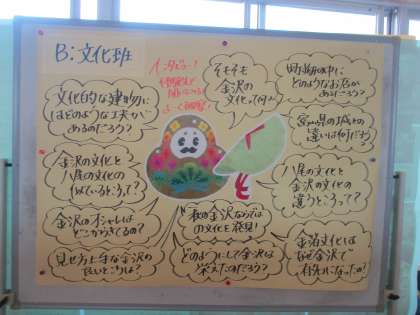 B:文化班
文化的な建物に
はどのような工夫が
あるのだろう?
金沢の文化と
八尾の文化との
似ているところって?
金沢のオシャレは
どこからきてるの?
見せ方上手な金沢の
良いところは?
そもそも
金沢の
文化って何?
どのようなお店が
あるだろう?
富山県の城との
違いは何だろう?
八尾の文化と
金沢の文化の
違うところって??
秋の金沢ならでは
の文化を発見!
どのようにして金沢は
栄えたのだろう?
金箔文化は
なぜ金沢で
有名になったの?